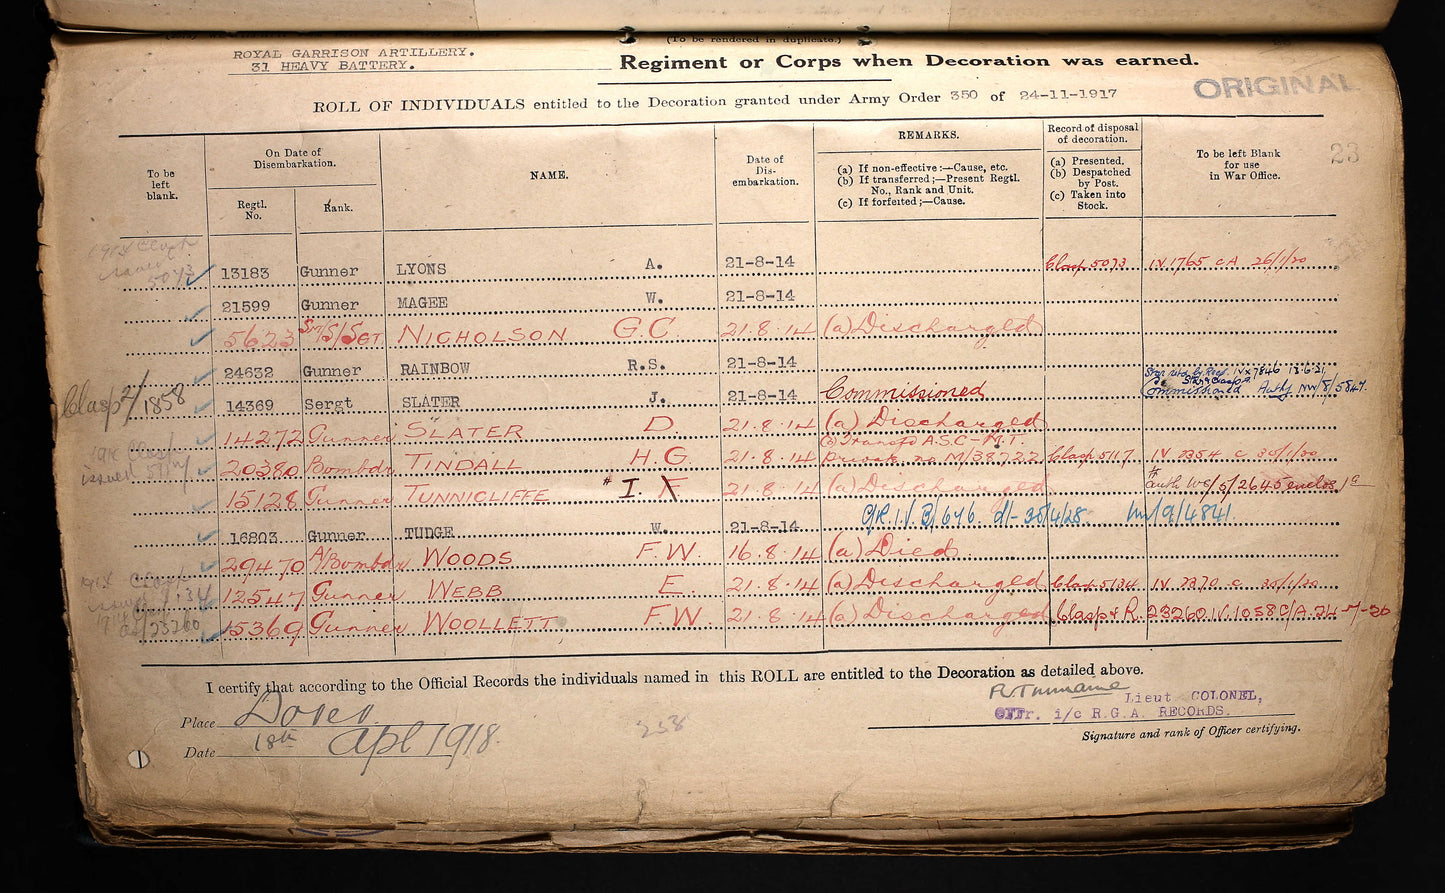 (To be rendered in duplicate.)
ROYAL GARRISON ARTILLERY.
31 HEAVY BATTERY. Regiment or Corps when Decoration was earned.
ORIGINAL
ROLL OF INDIVIDUALS entitled to the Decoration granted under Army Order 350 of 24-11-1917
23
To be left blank.
On Date of Disembarkation.
Regtl. No.
Rank.
NAME.
Date of Disembarkation.
REMARKS.
(a) If non-effective:—Cause, etc.
(b) If transferred;—Present Regtl. No., Rank and Unit.
(c) If forfeited;—Cause.
Record of disposal of decoration.
(a) Presented.
(b) Despatched by Post.
(c) Taken into Stock.
To be left Blank for use in War Office.
1914 Clasp issued 5073 13183 Gunner LYONS A. 21-8-14 Clasp 5073 IV 1765 c A 26/1/20
21599 Gunner MAGEE W. 21-8-14
5623 Sm/S/SGT NICHOLSON G.C. 21.8.14 (a) Discharged
24632 Gunner RAINBOW R.S. 21-8-14
Clasp 2/1858 14369 Sergt SLATER J. 21-8-14 Commissioned
Star retd by Recp. IVx7846 13.6.21
Star & Clasp
Commissioned Auth NW/8/5847.
14272 Gunner SLATER D. 21.8.14 (a) Discharged
1914 Clasp issued 5117 20380 Bombdr TINDALL H.G. 21.8.14 (b) Transfd A.S.C - M.T. Private no M/38722 Clasp 5117 IV 2354 c 30/1/20
15128 Gunner TUNNICLIFFE # I. F 21.8.14 (a) Discharged # auth WO/5/2645 enclos 1a
C/R.I.V. B/646 dl- 30/4/28. NW/9/4841.
16803 Gunner TUDGE W. 21-8-14
29470 A/Bombdr WOODS F.W. 16.8.14 (a) Died
1914 Clasp issued 5134 12547 Gunner WEBB E. 21.8.14 (a) Discharged Clasp 5134 IV 2370 c 30/1/20
23260 15369 Gunner WOOLLETT F.W. 21.8.14 (a) Discharged Clasp & R. 23260 IV.1058 C/A. 24-7-20
I certify that according to the Official Records the individuals named in this ROLL are entitled to the Decoration as detailed above.
Lieut COLONEL,
Offr. i/c R.G.A. RECORDS.
Place Dover.
Signature and rank of Officer certifying.
Date 18th Apl 1918.
238